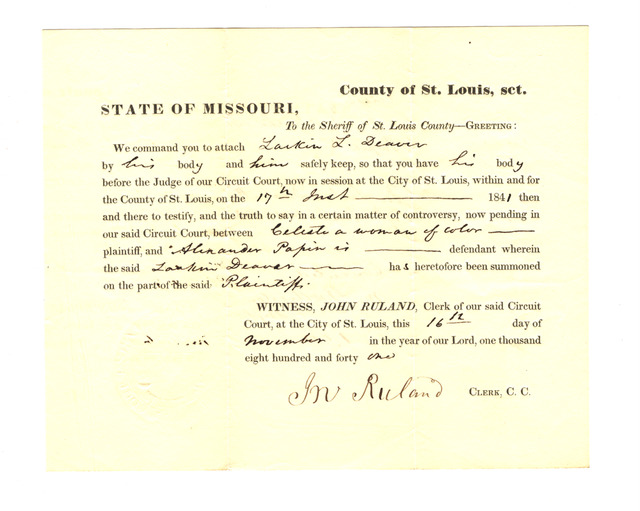 County of St. Louis, sct.
STATE OF MISSOURI,
To the Sheriff of St. Louis County—GREETING:
We command you to attach Larkin L. Deaver
by his body and him safely keep, so that you have his body
before the Judge of our Circuit Court, now in session at the City of St. Louis, within and for
the County of St. Louis, on the 17th Inst 1841 then
and there to testify, and the truth to say in a certain matter of controversy, now pending in
our said Circuit Court, between Celeste a woman of color
plaintiff, and Alexander Papin is defendant wherein
the said Larkin Deaver has heretofore been summoned
on the part of the said Plaintiff.
WITNESS, JOHN RULAND, Clerk of our said Circuit
Court, at the City of St. Louis, this 16th day of
November in the year of our Lord, one thousand
eight hundred and forty one
Jn Ruland CLERK, C. C.